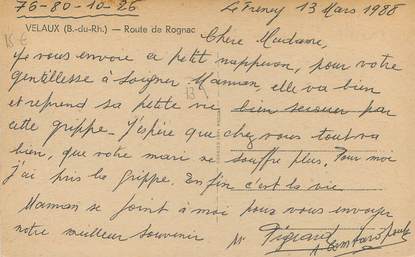 76-80-10-26
Le Freney 13 Mars 1988
VELAUX (B.-du-Rh.) — Route de Rognac
Chere Madame,
Je vous envoie ce petit napperon, pour votre
gentillesse à soigner Maman, elle va bien
et reprend sa petite vie bien secouer par
cette grippe. J'espère que chez vous tout va
bien, que votre mari ne souffre plus. Pour moi
j'ai pris la grippe. Enfin c'est la vie
Maman se joint à moi pour vous envoyer
notre meilleur souvenir
Mr